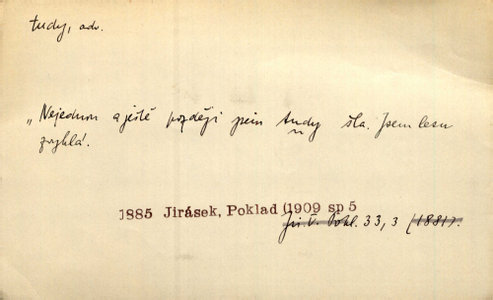 tudy, adv.
„Nejednou a ještě později jsem tudy šla. Jsem lesu
zvyklá.
1885 Jirásek, Poklad (1909 sp 5
Jir. V. Pokl. 33, 3 (1881).